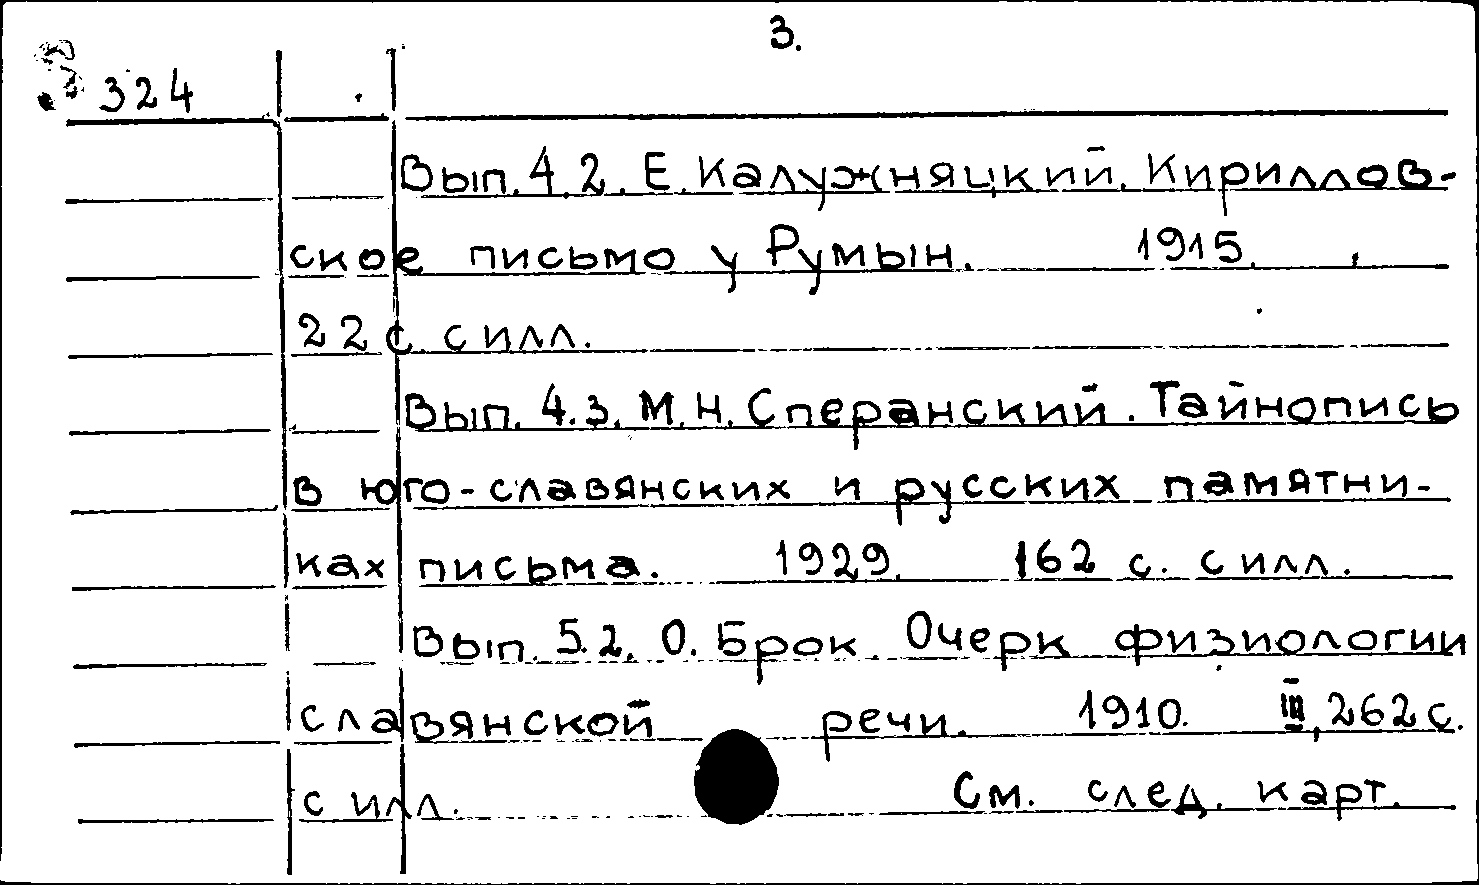 3.
324
Вып. 4.2. Е. Калужняцкий. Кириллов-
ское письмо у Румын. 1915.
22 с. с илл.
Вып. 4.3. М.Н. Сперанский. Тайнопись
в юго-славянских и русских памятни-
ках письма. 1929. 162 с. с илл.
Вып. 5.2. О. Брок. Очерк физиологии
славянской речи. 1910. III, 262 с.
с илл. См. след. карт.